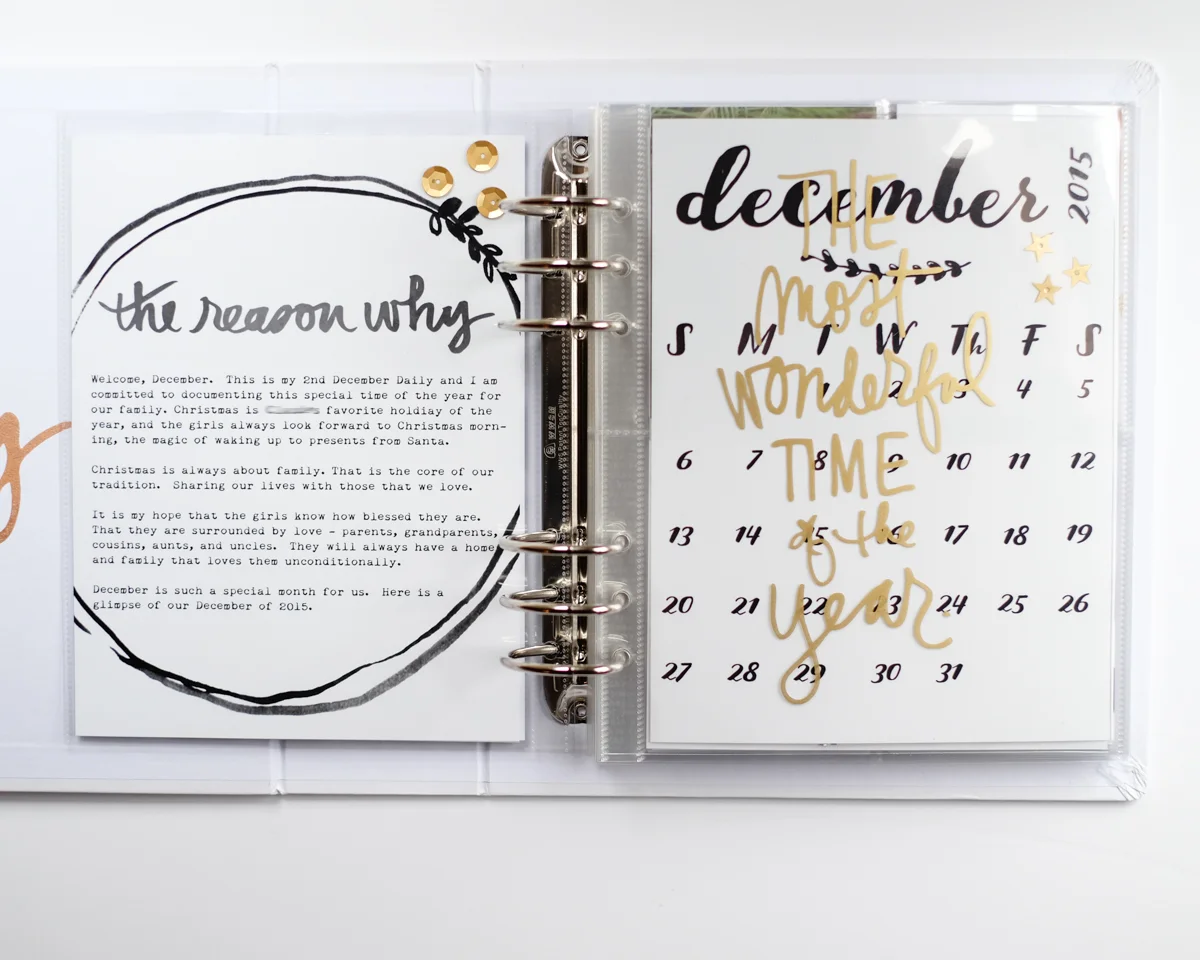 the reason why
Welcome, December. This is my 2nd December Daily and I am
committed to documenting this special time of the year for
our family. Christmas is favorite holdiay of the
year, and the girls always look forward to Christmas morn-
ing, the magic of waking up to presents from Santa.
Christmas is always about family. That is the core of our
tradition. Sharing our lives with those that we love.
It is my hope that the girls know how blessed they are.
That they are surrounded by love - parents, grandparents,
cousins, aunts, and uncles. They will always have a home
and family that loves them unconditionally.
December is such a special month for us. Here is a
glimpse of our December of 2015.
december
2015
THE
most
wonderful
TIME
of the
year.
S M T W Th F S
1 2 3 4 5
6 7 8 9 10 11 12
13 14 15 16 17 18 19
20 21 22 23 24 25 26
27 28 29 30 31